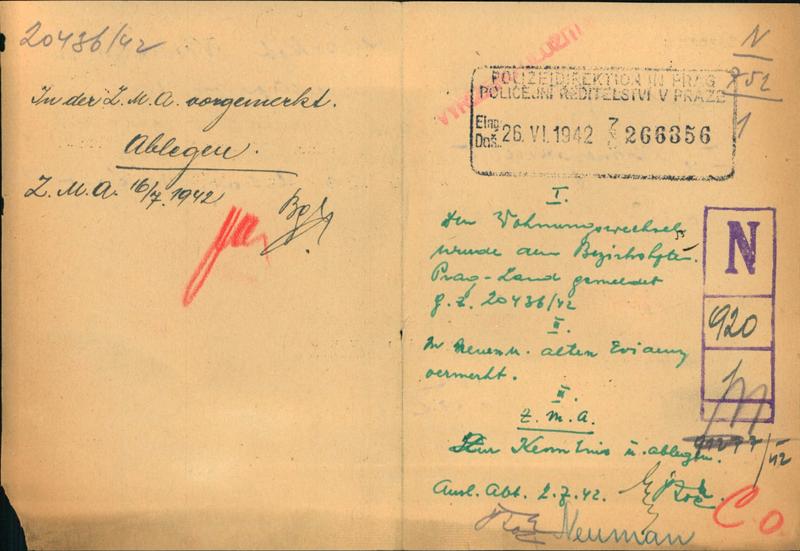 20436/42
In der Z.M.A. vorgemerkt.
Ablegen.
Z.M.A. 16/7. 1942
N
852
1
POLIZEIDIREKTION IN PRAG
POLICEJNÍ ŘEDITELSTVÍ V PRAZE
Eing.
Doš. 26. VI. 1942 266356
I.
Der Wohnungswechsel
wurde dem Bezirkshptm.
Prag-Land gemeldet
g. Z. 20436/42
II.
In neuen u. alten Evidenz
vermerkt.
II.
Z.M.A.
Zur Kenntnis u. ablegen.
Ausl. Abt. 2.7.42.
Neuman
N
920
CO